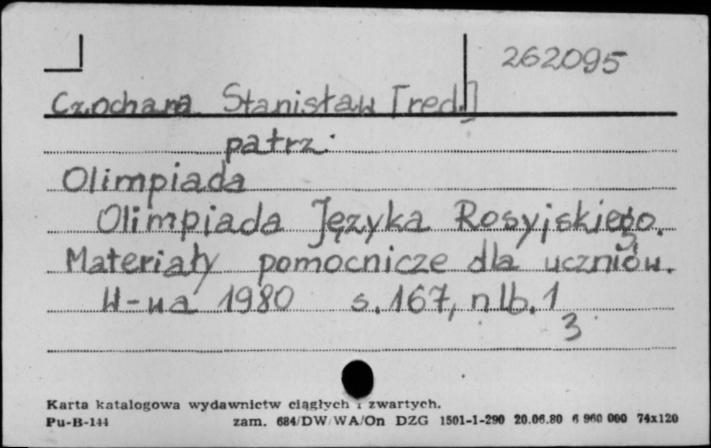 262095
Czochara Stanisław [red.]
patrz:
Olimpiada
Olimpiada Języka Rosyjskiego.
Materiały pomocnicze dla uczniów.
W-wa 1980 s. 167, nlb. 1
3
Karta katalogowa wydawnictw ciągłych i zwartych.
Pu-B-144 zam. 684/DW/WA/On DZG 1501-1-290 20.06.80 6 960 000 74x120